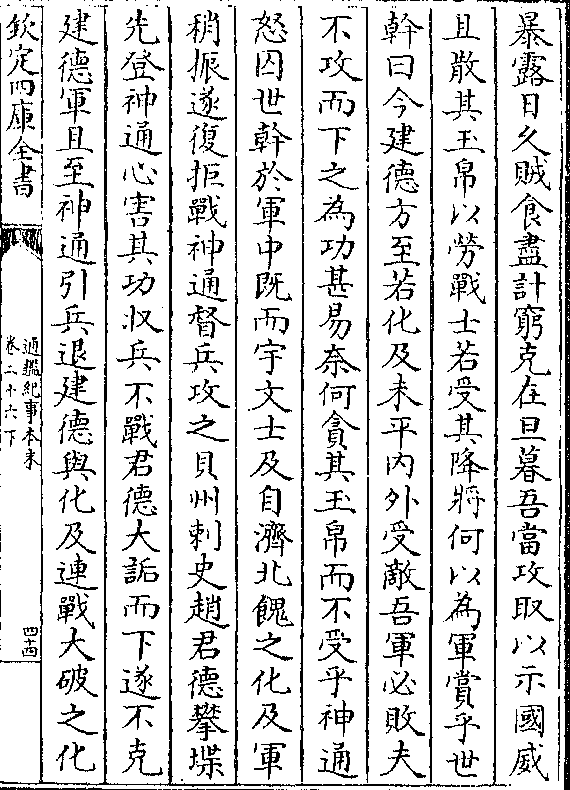 暴露日久賊食盡計窮克在旦暮吾當攻取以示國威
且散其玉帛以勞戰士若受其降將何以為軍賞乎世
幹曰今建德方至若化及未平内外受敵吾軍必敗夫
不攻而下之為功甚易奈何貪其玉帛而不受乎神通
怒囚世幹於軍中既而宇文士及自濟北餽之化及軍
稍振遂復拒戰神通督兵攻之貝州刺史趙君德攀堞
先登神通心害其功收兵不戰君德大詬而下遂不克
建德軍且至神通引兵退建德與化及連戰大破之化
欽定四庫全書
通鑑紀事本末
卷二十六下
四十四